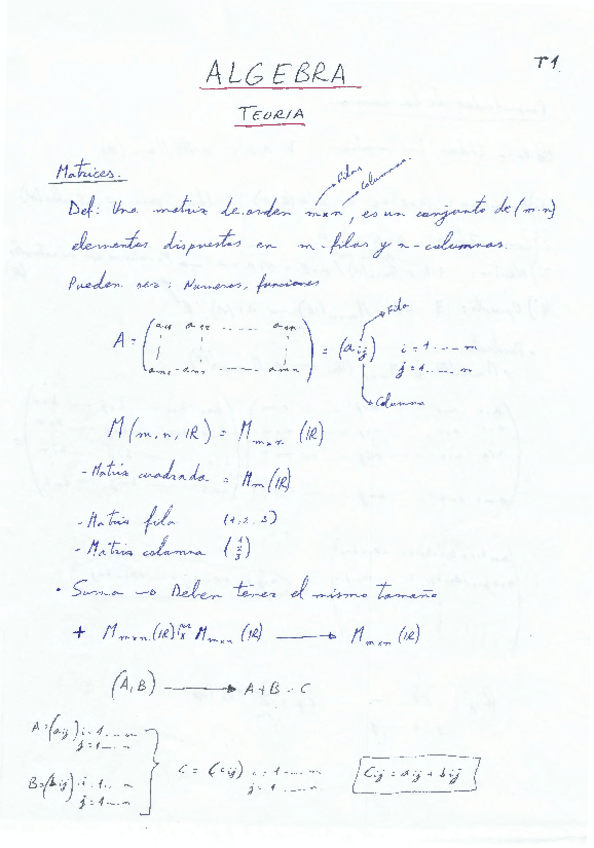 T1
ALGEBRA
TEORIA
Matrices.
Filas
columnas.
Def: Una matriz de orden m×n, es un conjunto de (m·n)
elementos dispuestos en m-filas y n-columnas.
Pueden ser: Numeros, funciones
Fila
A = (a11 a12 ...... a1n
am1 am2 ...... amn) = (aij) i=1....m
j=1....n
Columna
M(m,n,IR) = Mm×n (IR)
- Matriz cuadrada = Mn(IR)
- Matriz fila (1,2,3)
- Matriz columna (1 2 3)
• Suma → Deben tener el mismo tamaño
+ Mm×n(IR) x Mm×n(IR) → Mm×n(IR)
(A,B) → A+B = C
A=(aij) i=1....m
j=1....n
B=(bij) i=1....m
j=1....n
C = (cij) i=1....m
j=1....n
Cij = aij + bij